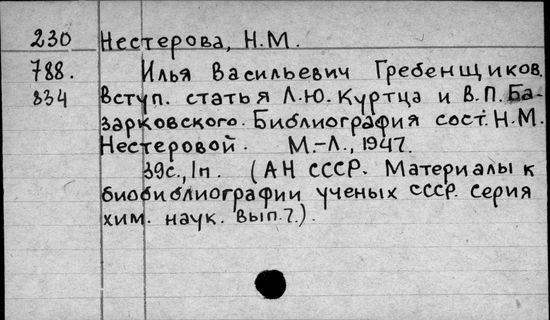 230 Нестерова, Н.М.
788. Илья Васильевич Гребенщиков.
834 Вступ. статья Л.Ю. Куртца и В.П. Ба-
зарковского. Библиография сост. Н.М.
Нестеровой. М.-Л., 1947.
39с., 1п. (АН СССР. Материалы к
биобиблиографии ученых СССР. Серия
хим. наук. вып.7.).